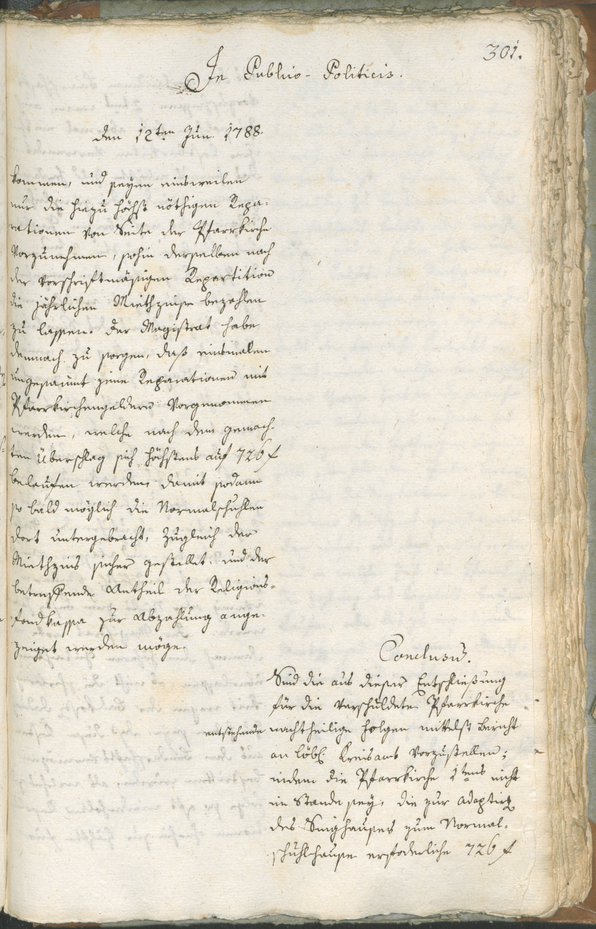 301.
In Publico-Politicis.
den 12ten Jun 1788.
kommen, und seyen einsweilen
nur die hiezu höchst nöthigen Repa-
rationen von Seite der Pfarrkirche
vorzunehmen, sohin derselben nach
der vorschriftmäsigen Repartition
die jährlichen Miethzinse bezahlen
zu lassen. Der Magistrat habe
demnach zu sorgen, daß einsmalen
ungesaumt jene Reparationen mit
Pfarrkirchengeldern vorgenommen
werden, welche nach dem gemach-
ten Überschlag sich höchstens auf 726 f
belaufen werden, damit sodann
so bald möglich die Normalschulen
dort untergebracht, zugleich der
Miethzins sicher gestellet, und der
betreffende Antheil der Religions-
fondkassa zur Abzahlung ange-
zeiget werden möge.
Conclusum.
Sind die aus dieser Entschließung
für die verschuldete Pfarrkirche
entstehende nachtheilige Folgen mittelst Bericht
an löbl. Kreisamt vorzustellen;
indem die Pfarrkirche 1tens nicht
im Stande sey, die zur
des Singhauses zum Normal-
schuhlhause erforderliche 726 f